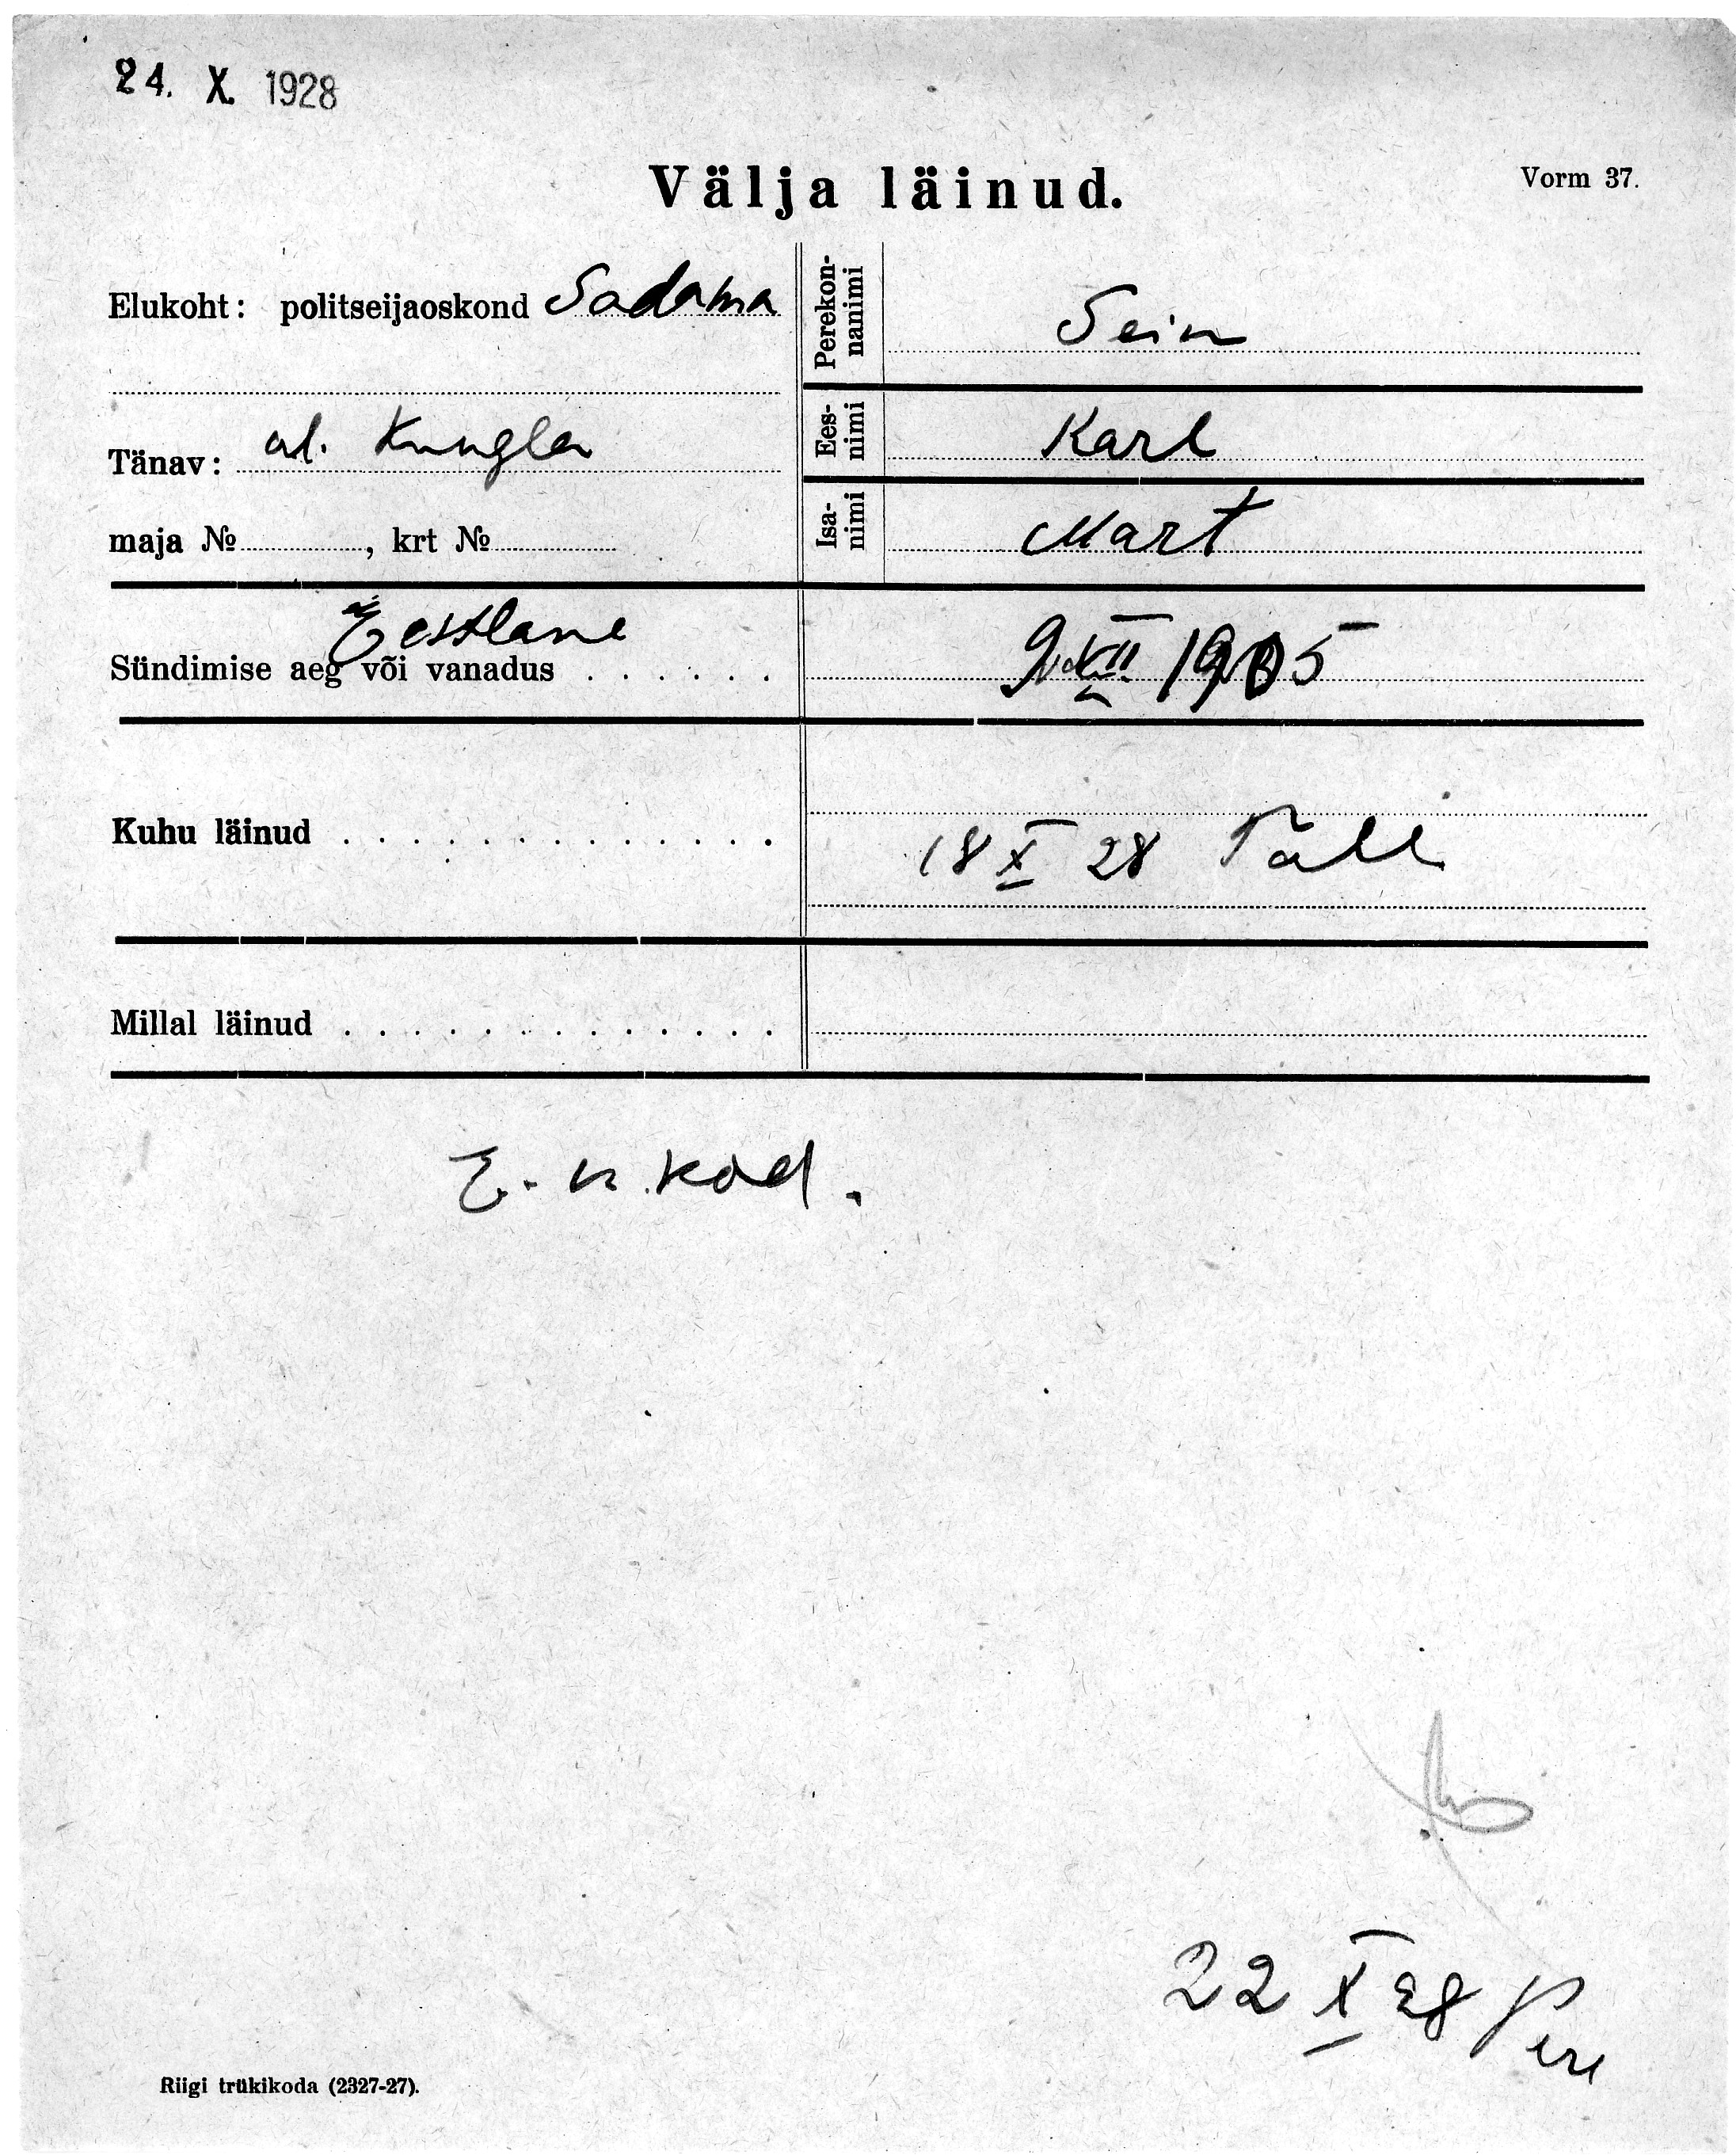 24. X. 1928
Välja läinud.
Vorm 37.
Elukoht: politseijaoskond Sadama
Tänav: al. Kungla
maja № , krt №
Perekon-
nanimi
Sein
Ees-
nimi
Karl
Isa-
nimi
Mart
Eestlane
Sündimise aeg või vanadus . . . . . .
1905
Kuhu läinud . . . . . . . . . . . . .
18 X 28 Tall
Millal läinud . . . . . . . . . . . . .
E. n. kod.
22 X 28
Riigi trükikoda (2327-27).